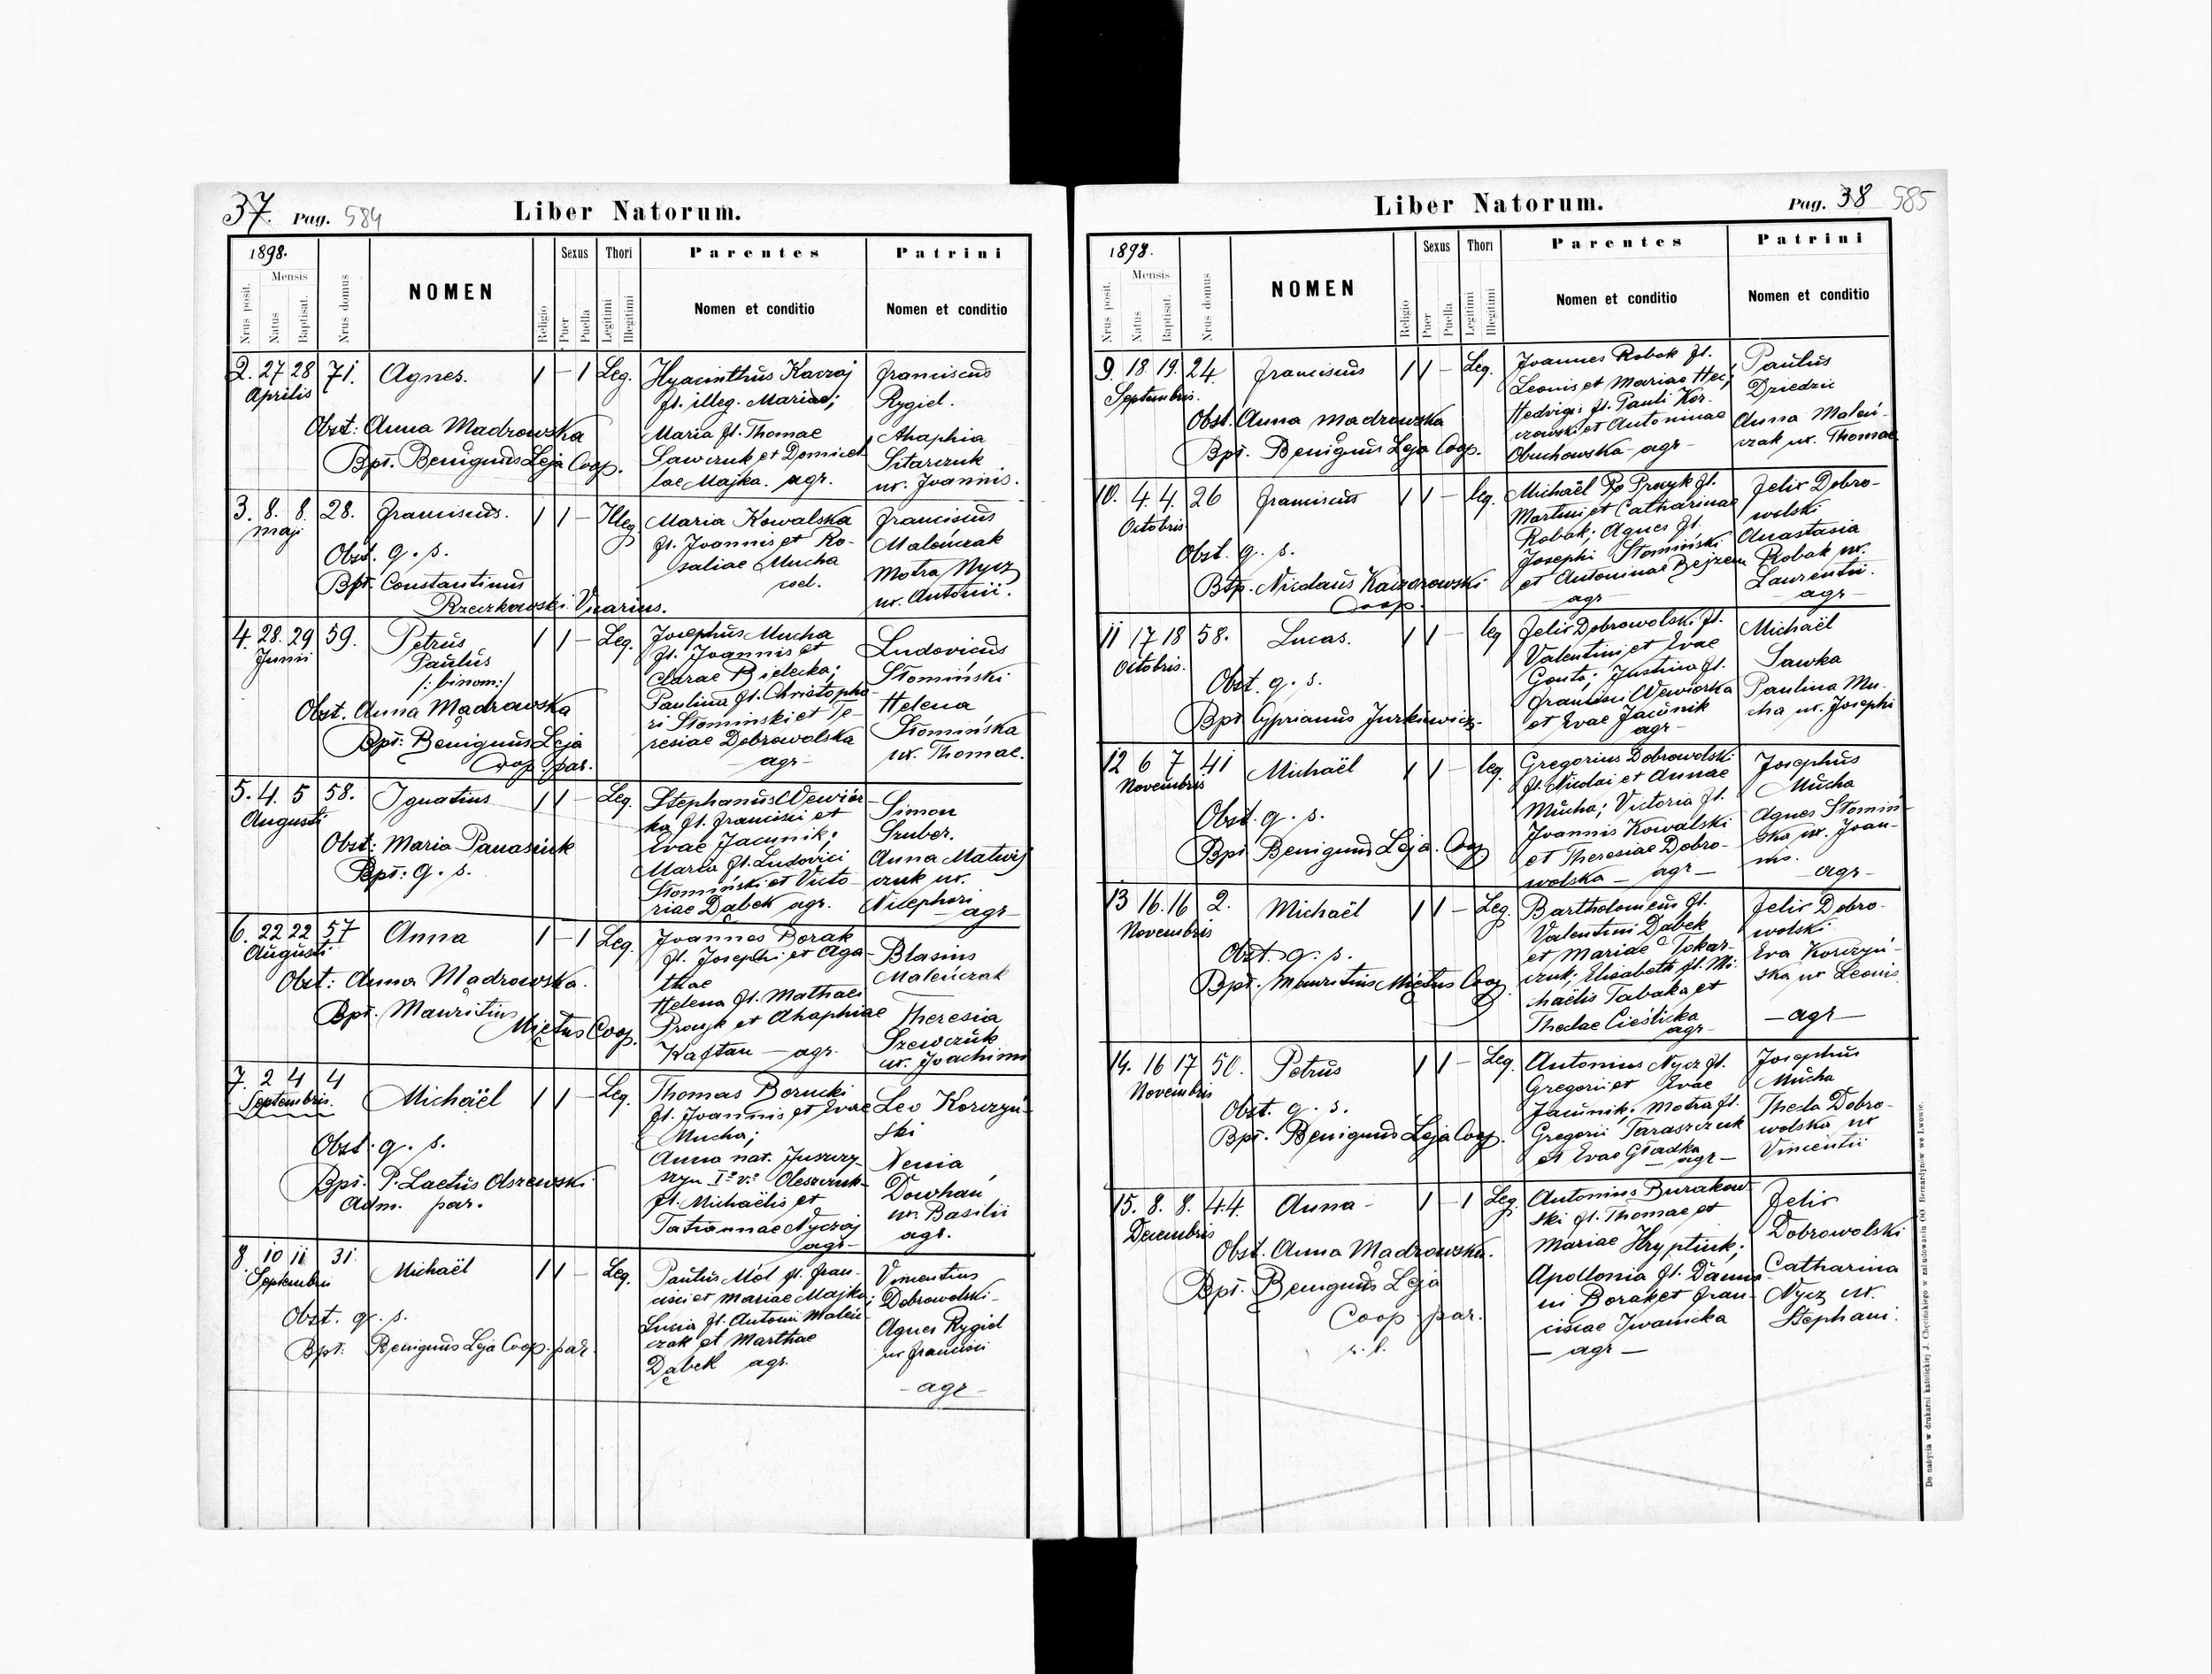 37. Pag. 584 Liber Natorum.
1898.
Nrus posit.
Mensis
Natus
Baptisat.
Nrus domus
NOMEN
Religio
Sexus
Puer
Puella
Thori
Legitimi
Illegitimi
Parentes
Nomen et conditio
Patrini
Nomen et conditio
2. 27 28 71. Agnes. 1 – 1 Leg.
Aprilis
Obst: Anna Madrowska
Bpt. Benignus Leja Coop.
Hyacinthus Kaczaj
fl. illeg. Mariae;
Maria fl. Thomae
Sawczuk et Domicel
lae Majka. agr.
Franciscus
Rygiel.
Ahaphia
Sitarczuk
ux. Joannis.
3. 8. 8. 28. Franciscus. 1 1 – Illeg.
Maji
Obst. q. s.
Bpt. Constantinus
Rzeczkowski Vicarius.
Maria Kowalska
fl. Joannis et Ro-
saliae Mucha
coel.
Franciscus
Maleńczak
Motra Nycz
ux. Antonii.
4. 28. 29 59. Petrus 1 1 – Leg.
Junii
Paulus
/: binom:/
Obst. Anna Madrowska
Bpt: Benignus Leja
Coop. par.
Josephus Mucha
fl. Joannis et
Clarae Bielecka;
Paulina fl. Christopho-
ri Słomiński et Te-
resiae Dobrowolska
agr-
Ludovicus
Słomiński
Helena
Słomińska
ux. Thomae.
5. 4. 5 58. Ignatius 1 1 – Leg.
Augusti
Obst: Maria Panasiuk
Bpt: q. s.
Stephanus Wewiór-
ka fl. Francisci et
Evae Jacunik;
Maria fl. Ludovici
Słomiński et Victo-
riae Dąbek agr.
Simon
Gruber.
Anna Matwij
czuk ux.
Nicephori
agr-
6. 22 22 57 Anna 1 – 1 Leg.
Augusti
Obst: Anna Madrowska.
Bpt. Mauritius
Miętus Coop.
Joannes Borak
fl. Josephi et Aga-
thae
Helena fl. Mathaei
Procyk et Ahaphiae
Kaftan — agr.
Blasius
Maleńczak
Theresia
Szewczuk
ux. Joachimi
7. 2 4 4 Michaël 1 1 – Leg.
Septembris.
Obst: q. s.
Bpt. P. Laetus Olszewski
Adm. par.
Thomas Borucki
fl. Joannis et Evae
Mucha;
Anna nat. Juszczy-
szyn Iº vº Oleszczuk
fl. Michaëlis et
Tatiannae Nyczaj
agr-
Leo Korczyń-
ski
Nenia
Dowhań
ux. Basilii
agr.
8. 10 11 31. Michaël 1 1 – Leg.
Septembris
Obst. q. s.
Bpt. Benignus Leja Coop. par.
Paulus Mól fl. Fran-
cisci et Mariae Majka;
Lucia fl. Antonii Maleń-
czak et Marthae
Dąbek agr.
Vincentius
Dobrowolski-
Agnes Rygiel
ux Francisci
- agr -
Liber Natorum. Pag. 38 585
1898.
Nrus posit.
Mensis
Natus
Baptisat.
Nrus domus
NOMEN
Religio
Sexus
Puer
Puella
Thori
Legitimi
Illegitimi
Parentes
Nomen et conditio
Patrini
Nomen et conditio
9. 18 19. 24. Franciscus 1 1 – Leg.
Septembris.
Obst. Anna Madrowska
Bpt. Benignus Leja Coop.
Joannes Robak fl.
Leonis et Mariae
Hedvigis fl. Pauli Kor-
czowski et Antoninae
Obuchowska - agr -
Paulus
Dziedzic
Anna Maleń-
czak ux. Thomae
10. 4. 4. 26 Franciscus 1 1 – leg.
Octobris
Obst. q. s.
Btp. Nicolaus Kaczorowski
Coop.
Michaël Procyk fl.
Martini et Catharinae
Robak; Agnes fl.
Josephi Słomiński
et Antoninae Bejzem
agr -
Felix Dobro-
wolski
Anastasia
Robak ux.
Laurentii.
- agr -
11 17 18 58. Lucas. 1 1 – leg
Octobris.
Obst. q. s.
Bpt Cyprianus Jurkiewicz.
Felix Dobrowolski fl.
Valentini et Evae
Gonta; Justina fl.
Francisci Wewiórka
et Evae Jacunik
agr -
Michaël
Sawka
Paulina Mu-
cha ux. Josephi
12 6 7 41 Michaël 1 1 – leg.
Novembris
Obst. q. s.
Bpt. Benignus Leja. Coop
Gregorius Dobrowolski
fl. Nicolai et Annae
Mucha; Victoria fl.
Joannis Kowalski
et Theresiae Dobro-
wolska — agr —
Josephus
Mucha
Agnes Słomiń-
ska ux. Joan-
nis.
agr -
13 16. 16 2. Michaël 1 1 – Leg.
Novembris
Obst. q. s.
Bpt. Mauritius Miętus Coop
Bartholomeus fl.
Valentini Dąbek
et Mariae Tokar-
czuk; Elisabeth fl. Mi-
chaëlis Tabaka et
Theclae Cieślicka
agr-
Felix Dobro-
wolski
Eva Korczyń-
ska ux Leonis
— agr —
14. 16 17 50. Petrus 1 1 – Leg.
Novembris
Obst. q. s.
Bpt. Benignus Leja Coop.
Antonius Nycz fl.
Gregorii et Evae
Jacunik; Motra fl.
Gregorii Taraszczuk
et Evae Gładka
— agr —
Josephus
Mucha
Thecla Dobro-
wolska ux
Vincentii
15. 8. 8. 44. Anna - 1 – 1 Leg.
Decembris
Obst. Anna Madrowska.
Bpt. Benignus Leja
Coop. par.
r. l.
Antonius Burakow-
ski fl. Thomae et
Mariae Hryptiuk;
Apollonia fl. Damia-
ni Borak et Fran-
ciscae Iwanicka
— agr —
Felix
Dobrowolski
Catharina
Nycz ux.
Stephani.
Do nabycia w drukarni katolickiej J. Chęcińskiego w zabudowaniu OO. Bernardynów we Lwowie.